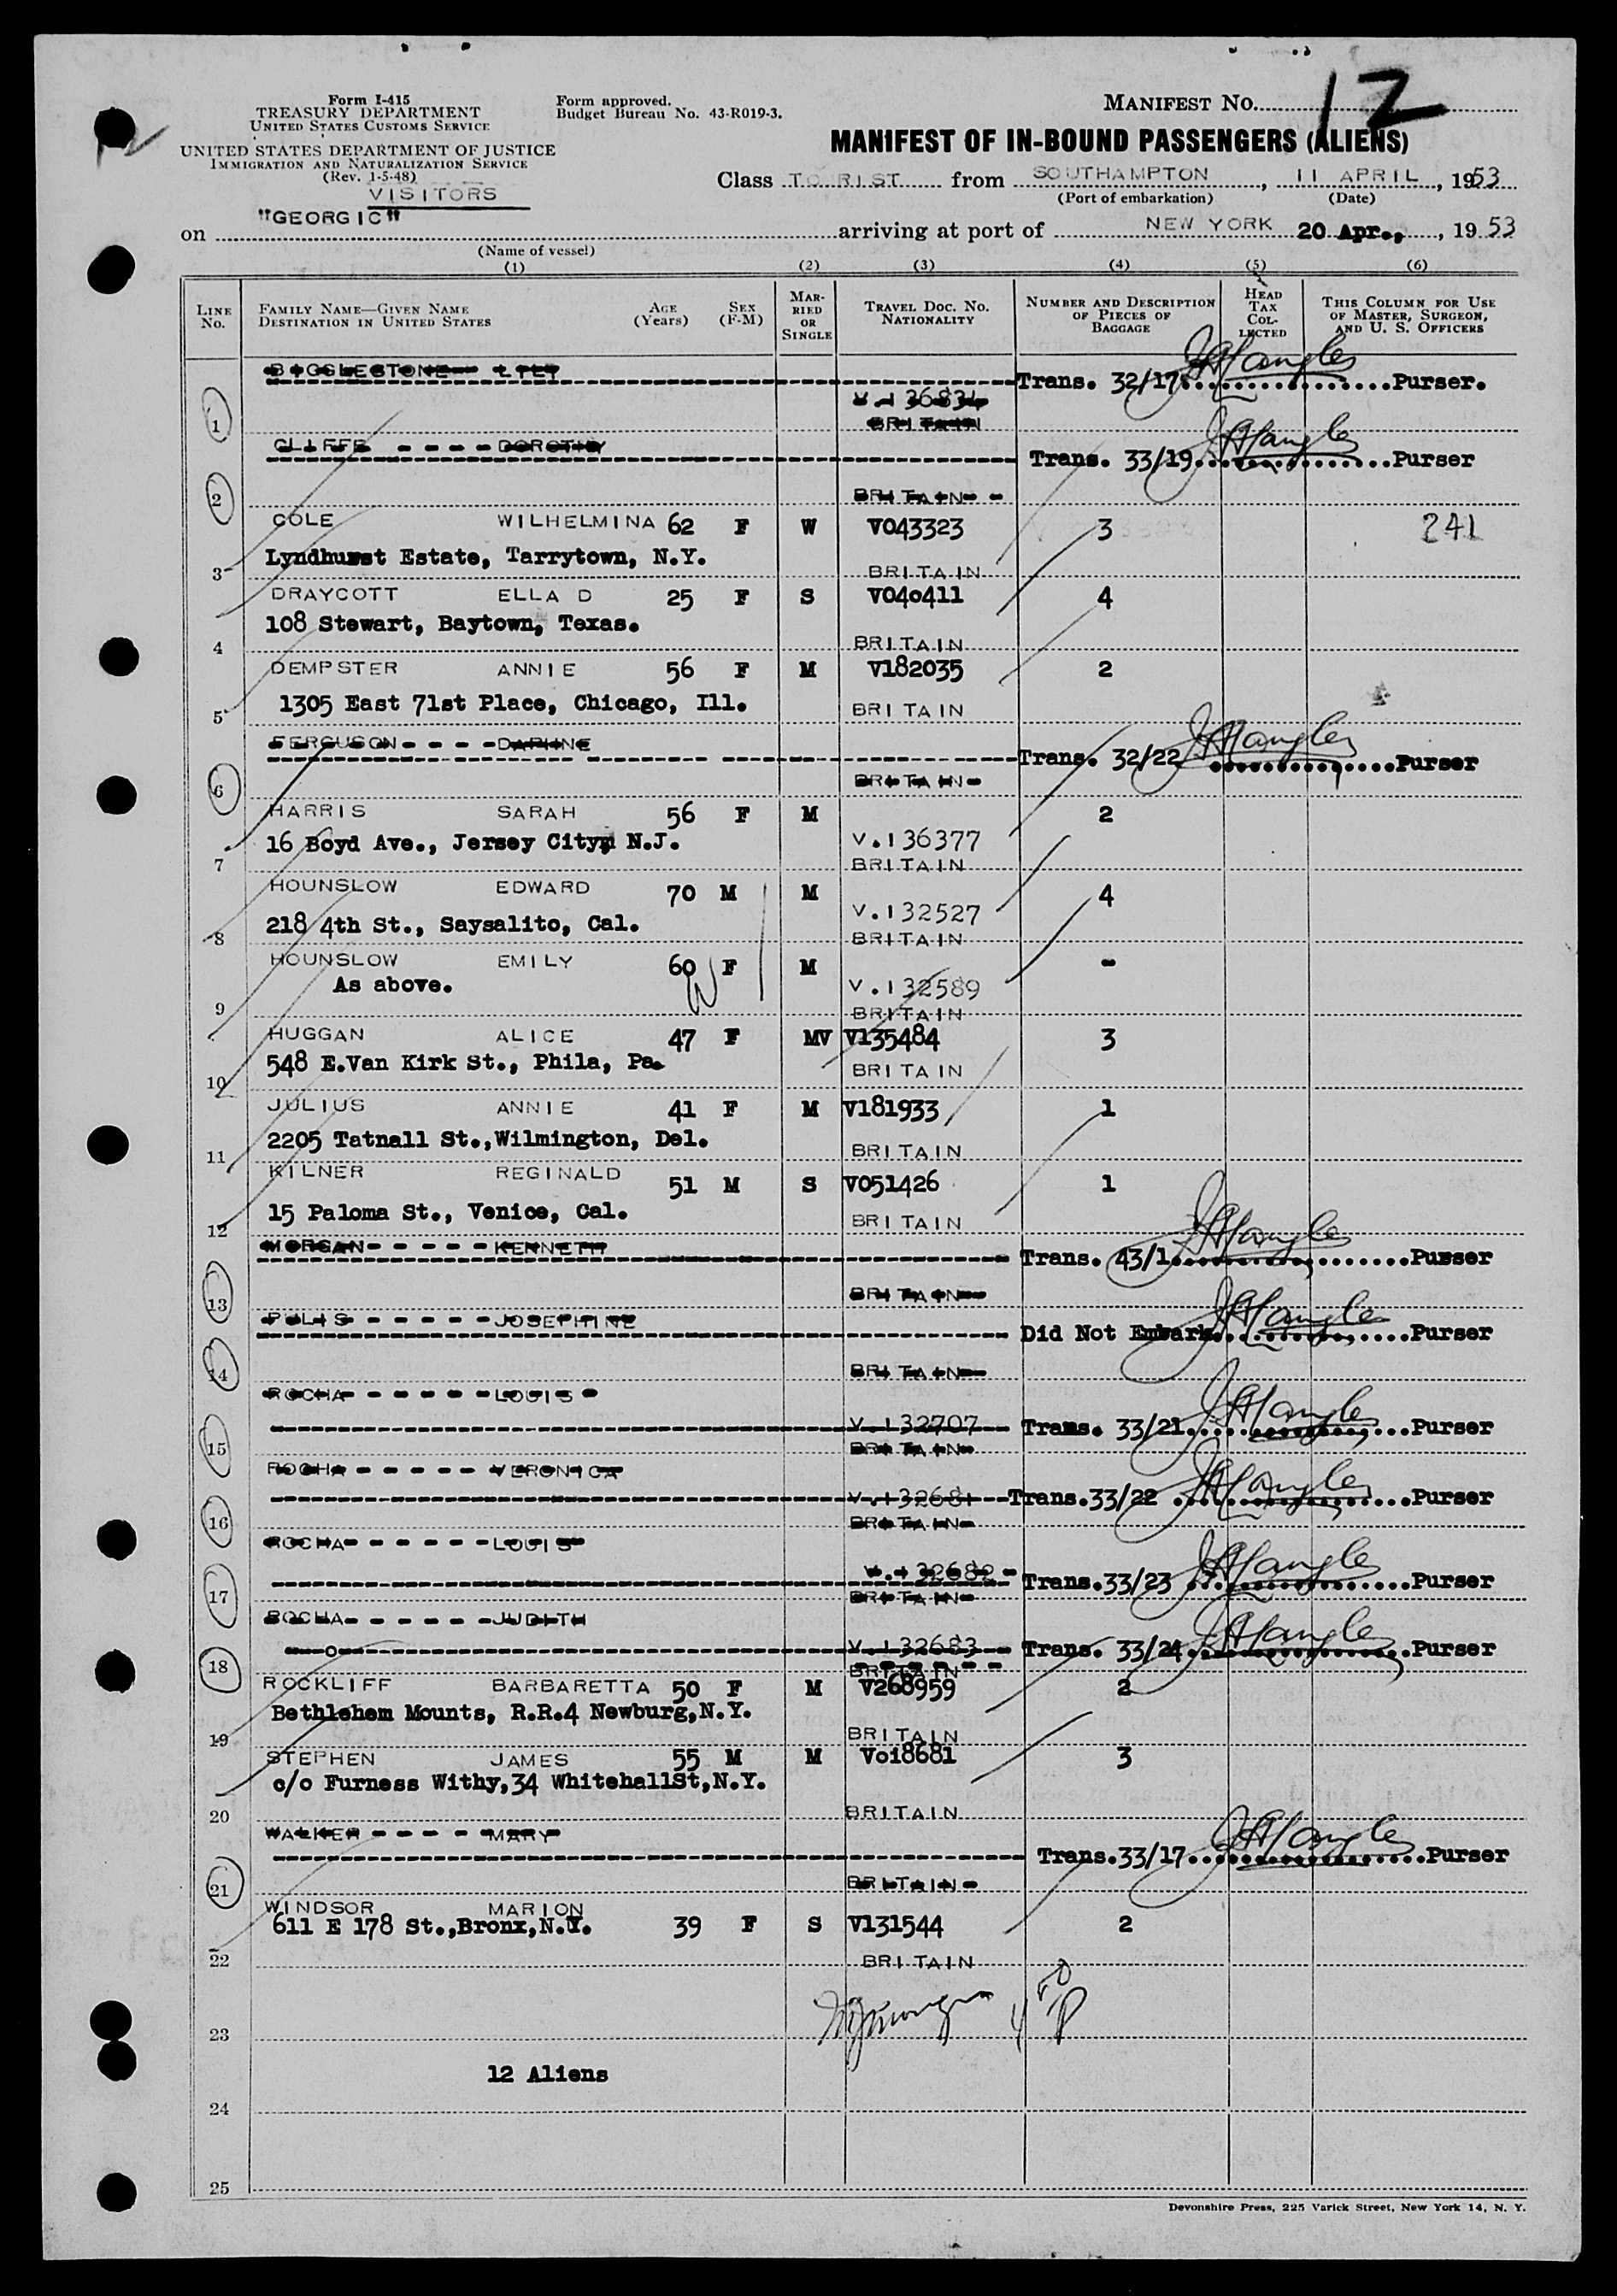 12
Form I-415
TREASURY DEPARTMENT
UNITED STATES CUSTOMS SERVICE
UNITED STATES DEPARTMENT OF JUSTICE
IMMIGRATION AND NATURALIZATION SERVICE
(Rev. 1-5-48)
VISITORS
Form approved.
Budget Bureau No. 43-R019-3.
MANIFEST NO.
MANIFEST OF IN-BOUND PASSENGERS (ALIENS)
Class TOURIST from SOUTHAMPTON, 11 APRIL, 1953
(Port of embarkation) (Date)
on "GEORGIC" arriving at port of NEW YORK 20 Apr., 1953
(Name of vessel)
(1) (2) (3) (4) (5) (6)
LINE No. FAMILY NAME—GIVEN NAME DESTINATION IN UNITED STATES AGE (Years) SEX (F-M) MARRIED OR SINGLE TRAVEL DOC. NO. NATIONALITY NUMBER AND DESCRIPTION OF PIECES OF BAGGAGE HEAD TAX COLLECTED THIS COLUMN FOR USE OF MASTER, SURGEON, AND U. S. OFFICERS
LILY
Trans. 32/17 Purser.
V.136834
1 BRITAIN
CLIFFE DOROTHY
Trans. 33/19 Purser
2 BRITAIN
COLE WILHELMINA 62 F W V043323 3 241
Lyndhurst Estate, Tarrytown, N.Y.
3 BRITAIN
DRAYCOTT ELLA D 25 F S V040411 4
108 Stewart, Baytown, Texas.
4 BRITAIN
DEMPSTER ANNIE 56 F M V182035 2
1305 East 71st Place, Chicago, Ill.
5 BRITAIN
FERGUSON DAPHNE
Trans. 32/22 Purser
6 BRITAIN
HARRIS SARAH 56 F M 2
16 Boyd Ave., Jersey City, N.J. V.136377
7 BRITAIN
HOUNSLOW EDWARD 70 M M 4
218 4th St., Saysalito, Cal. V.132527
8 BRITAIN
HOUNSLOW EMILY 60 F M -
As above. V.132589
9 BRITAIN
HUGGAN ALICE 47 F MV V135484 3
548 E.Van Kirk St., Phila, Pa.
10 BRITAIN
JULIUS ANNIE 41 F M V181933 1
2205 Tatnall St.,Wilmington, Del.
11 BRITAIN
KILNER REGINALD 51 M S V051426 1
15 Paloma St., Venice, Cal.
12 BRITAIN
MORGAN KENNETH
Trans. 43/1 Purser
13 BRITAIN
PULIS JOSEPHINE
Did Not Embark Purser
14 BRITAIN
ROCHA LOUIS
V.132707 Trans. 33/21 Purser
15 BRITAIN
ROCHA VERONICA
V.132681 Trans.33/22 Purser
16 BRITAIN
ROCHA LOUIS
V.132682 Trans.33/23 Purser
17 BRITAIN
ROCHA JUDITH
V.132683 Trans. 33/24 Purser
18 BRITAIN
ROCKLIFF BARBARETTA 50 F M V268959 2
Bethlehem Mounts, R.R.4 Newburg,N.Y.
19 BRITAIN
STEPHEN JAMES 55 M M Vo18681 3
c/o Furness Withy,34 WhitehallSt,N.Y.
20 BRITAIN
WALKER MARY
Trans.33/17 Purser
21 BRITAIN
WINDSOR MARION
611 E 178 St.,Bronx,N.Y. 39 F S V131544 2
22 BRITAIN
23
12 Aliens
24
25
Devonshire Press, 225 Varick Street, New York 14, N. Y.